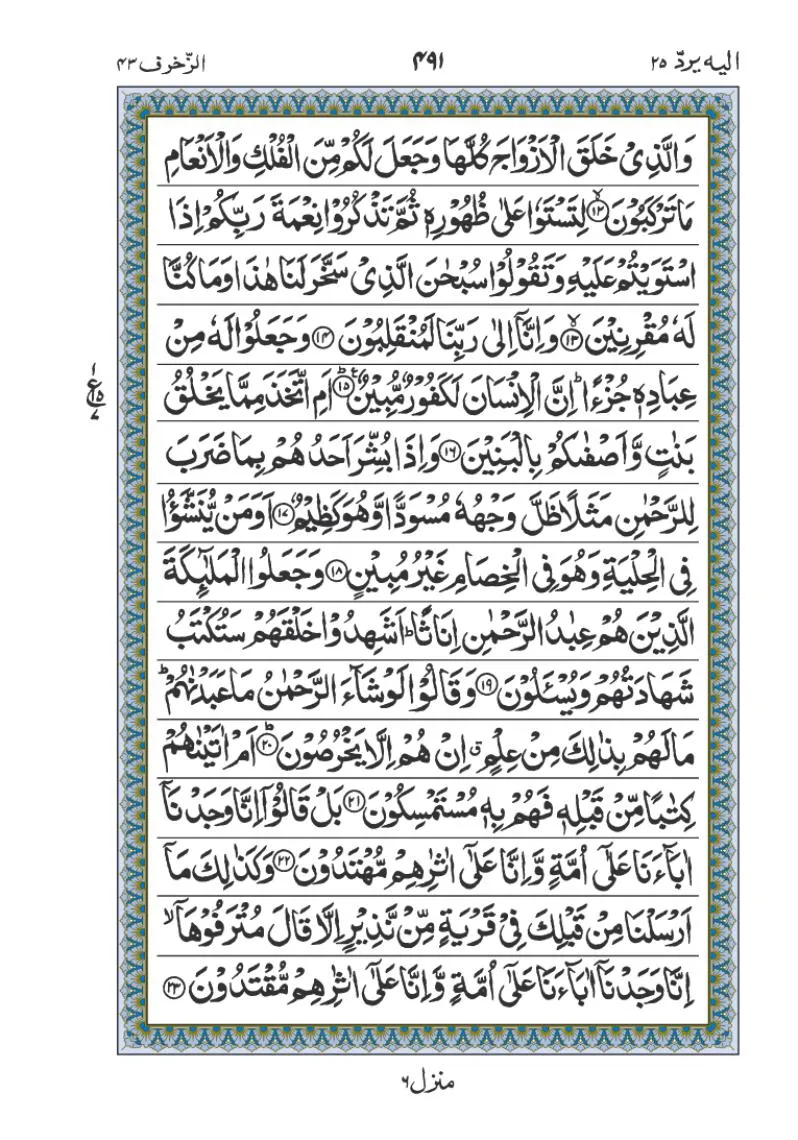 الیه یردّ ۲۵
۴۹۱
الزّخرف ۴۳
وَالَّذِیْ خَلَقَ الْاَزْوَاجَ كُلَّهَا وَجَعَلَ لَكُمْ مِّنَ الْفُلْكِ وَالْاَنْعَامِ
مَا تَرْكَبُوْنَ ۙ﴿۱۲﴾ لِتَسْتَوٗا عَلٰی ظُهُوْرِهٖ ثُمَّ تَذْكُرُوْا نِعْمَةَ رَبِّكُمْ اِذَا
اسْتَوَیْتُمْ عَلَیْهِ وَتَقُوْلُوْا سُبْحٰنَ الَّذِیْ سَخَّرَ لَنَا هٰذَا وَمَا كُنَّا
لَهٗ مُقْرِنِیْنَ ۙ﴿۱۳﴾ وَاِنَّاۤ اِلٰی رَبِّنَا لَمُنْقَلِبُوْنَ ﴿۱۴﴾ وَجَعَلُوْا لَهٗ مِنْ
عِبَادِهٖ جُزْءًا ؕ اِنَّ الْاِنْسَانَ لَكَفُوْرٌ مُّبِیْنٌ ؕ۠﴿۱۵﴾ اَمِ اتَّخَذَ مِمَّا یَخْلُقُ
بَنٰتٍ وَّاَصْفٰىكُمْ بِالْبَنِیْنَ ﴿۱۶﴾ وَاِذَا بُشِّرَ اَحَدُهُمْ بِمَا ضَرَبَ
لِلرَّحْمٰنِ مَثَلًا ظَلَّ وَجْهُهٗ مُسْوَدًّا وَّهُوَ كَظِیْمٌ ﴿۱۷﴾ اَوَمَنْ یُّنَشَّؤُا
فِی الْحِلْیَةِ وَهُوَ فِی الْخِصَامِ غَیْرُ مُبِیْنٍ ﴿۱۸﴾ وَجَعَلُوا الْمَلٰٓىِٕكَةَ
الَّذِیْنَ هُمْ عِبٰدُ الرَّحْمٰنِ اِنَاثًا ؕ اَشَهِدُوْا خَلْقَهُمْ سَتُكْتَبُ
شَهَادَتُهُمْ وَیُسْـَٔلُوْنَ ﴿۱۹﴾ وَقَالُوْا لَوْ شَآءَ الرَّحْمٰنُ مَا عَبَدْنٰهُمْ ؕ
مَا لَهُمْ بِذٰلِكَ مِنْ عِلْمٍ ۗ اِنْ هُمْ اِلَّا یَخْرُصُوْنَ ؕ﴿۲۰﴾ اَمْ اٰتَیْنٰهُمْ
كِتٰبًا مِّنْ قَبْلِهٖ فَهُمْ بِهٖ مُسْتَمْسِكُوْنَ ﴿۲۱﴾ بَلْ قَالُوْۤا اِنَّا وَجَدْنَاۤ
اٰبَآءَنَا عَلٰۤی اُمَّةٍ وَّاِنَّا عَلٰۤی اٰثٰرِهِمْ مُّهْتَدُوْنَ ﴿۲۲﴾ وَكَذٰلِكَ مَاۤ
اَرْسَلْنَا مِنْ قَبْلِكَ فِیْ قَرْیَةٍ مِّنْ نَّذِیْرٍ اِلَّا قَالَ مُتْرَفُوْهَاۤ ۙ
اِنَّا وَجَدْنَاۤ اٰبَآءَنَا عَلٰۤی اُمَّةٍ وَّاِنَّا عَلٰۤی اٰثٰرِهِمْ مُّقْتَدُوْنَ ﴿۲۳﴾
۱
ع
۱۵
۷
منزل ۶